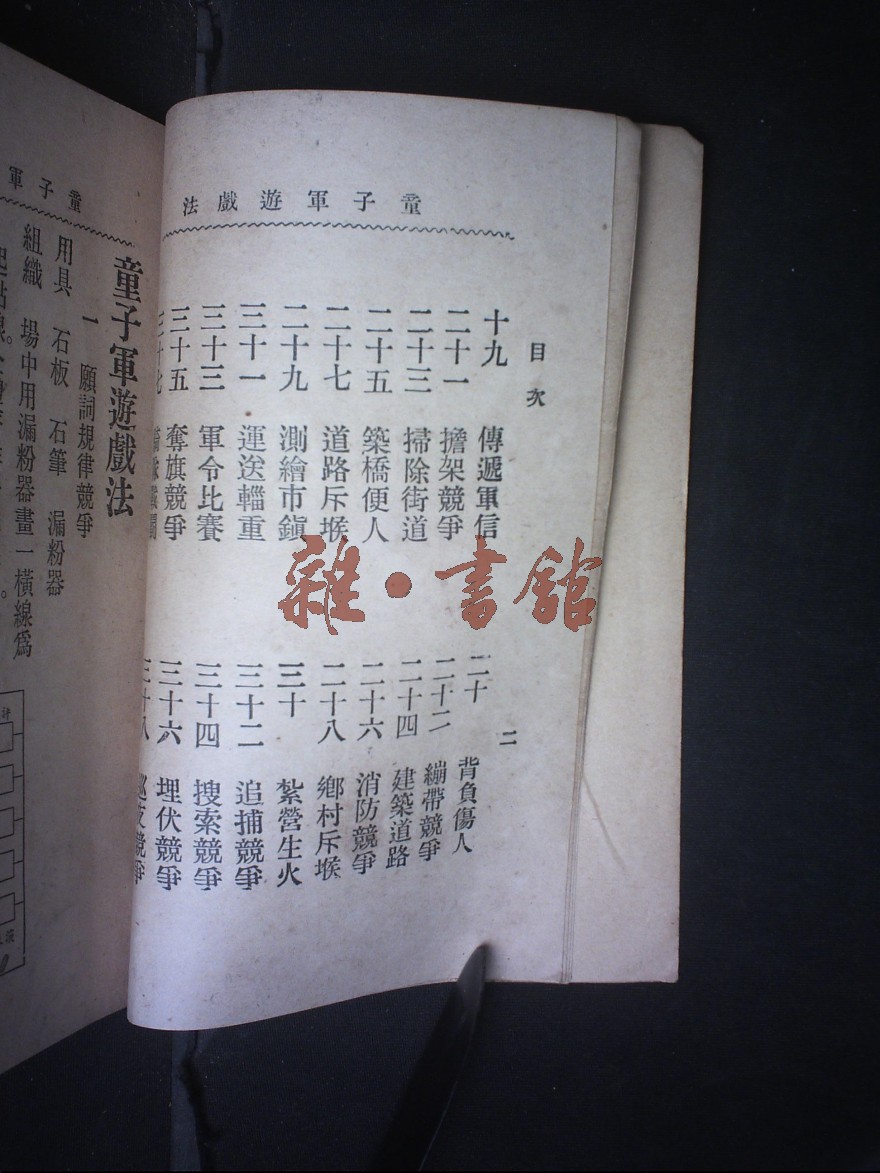 童子軍遊戲法
目次
二
十九 傳遞軍信
二十 背負傷人
二十一 擔架競爭
二十二 繃帶競爭
二十三 掃除街道
二十四 建築道路
二十五 築橋便人
二十六 消防競爭
二十七 道路斥堠
二十八 鄉村斥堠
二十九 測繪市鎮
三十 紮營生火
三十一 運送輜重
三十二 追捕競爭
三十三 軍令比賽
三十四 搜索競爭
三十五 奪旗競爭
三十六 埋伏競爭
三十七
三十八 競爭
童子軍
童子軍遊戲法
一 願詞規律競爭
用具 石板 石筆 漏粉器
組織 場中用漏粉器畫一橫線爲
起點線。
計
雜·書館